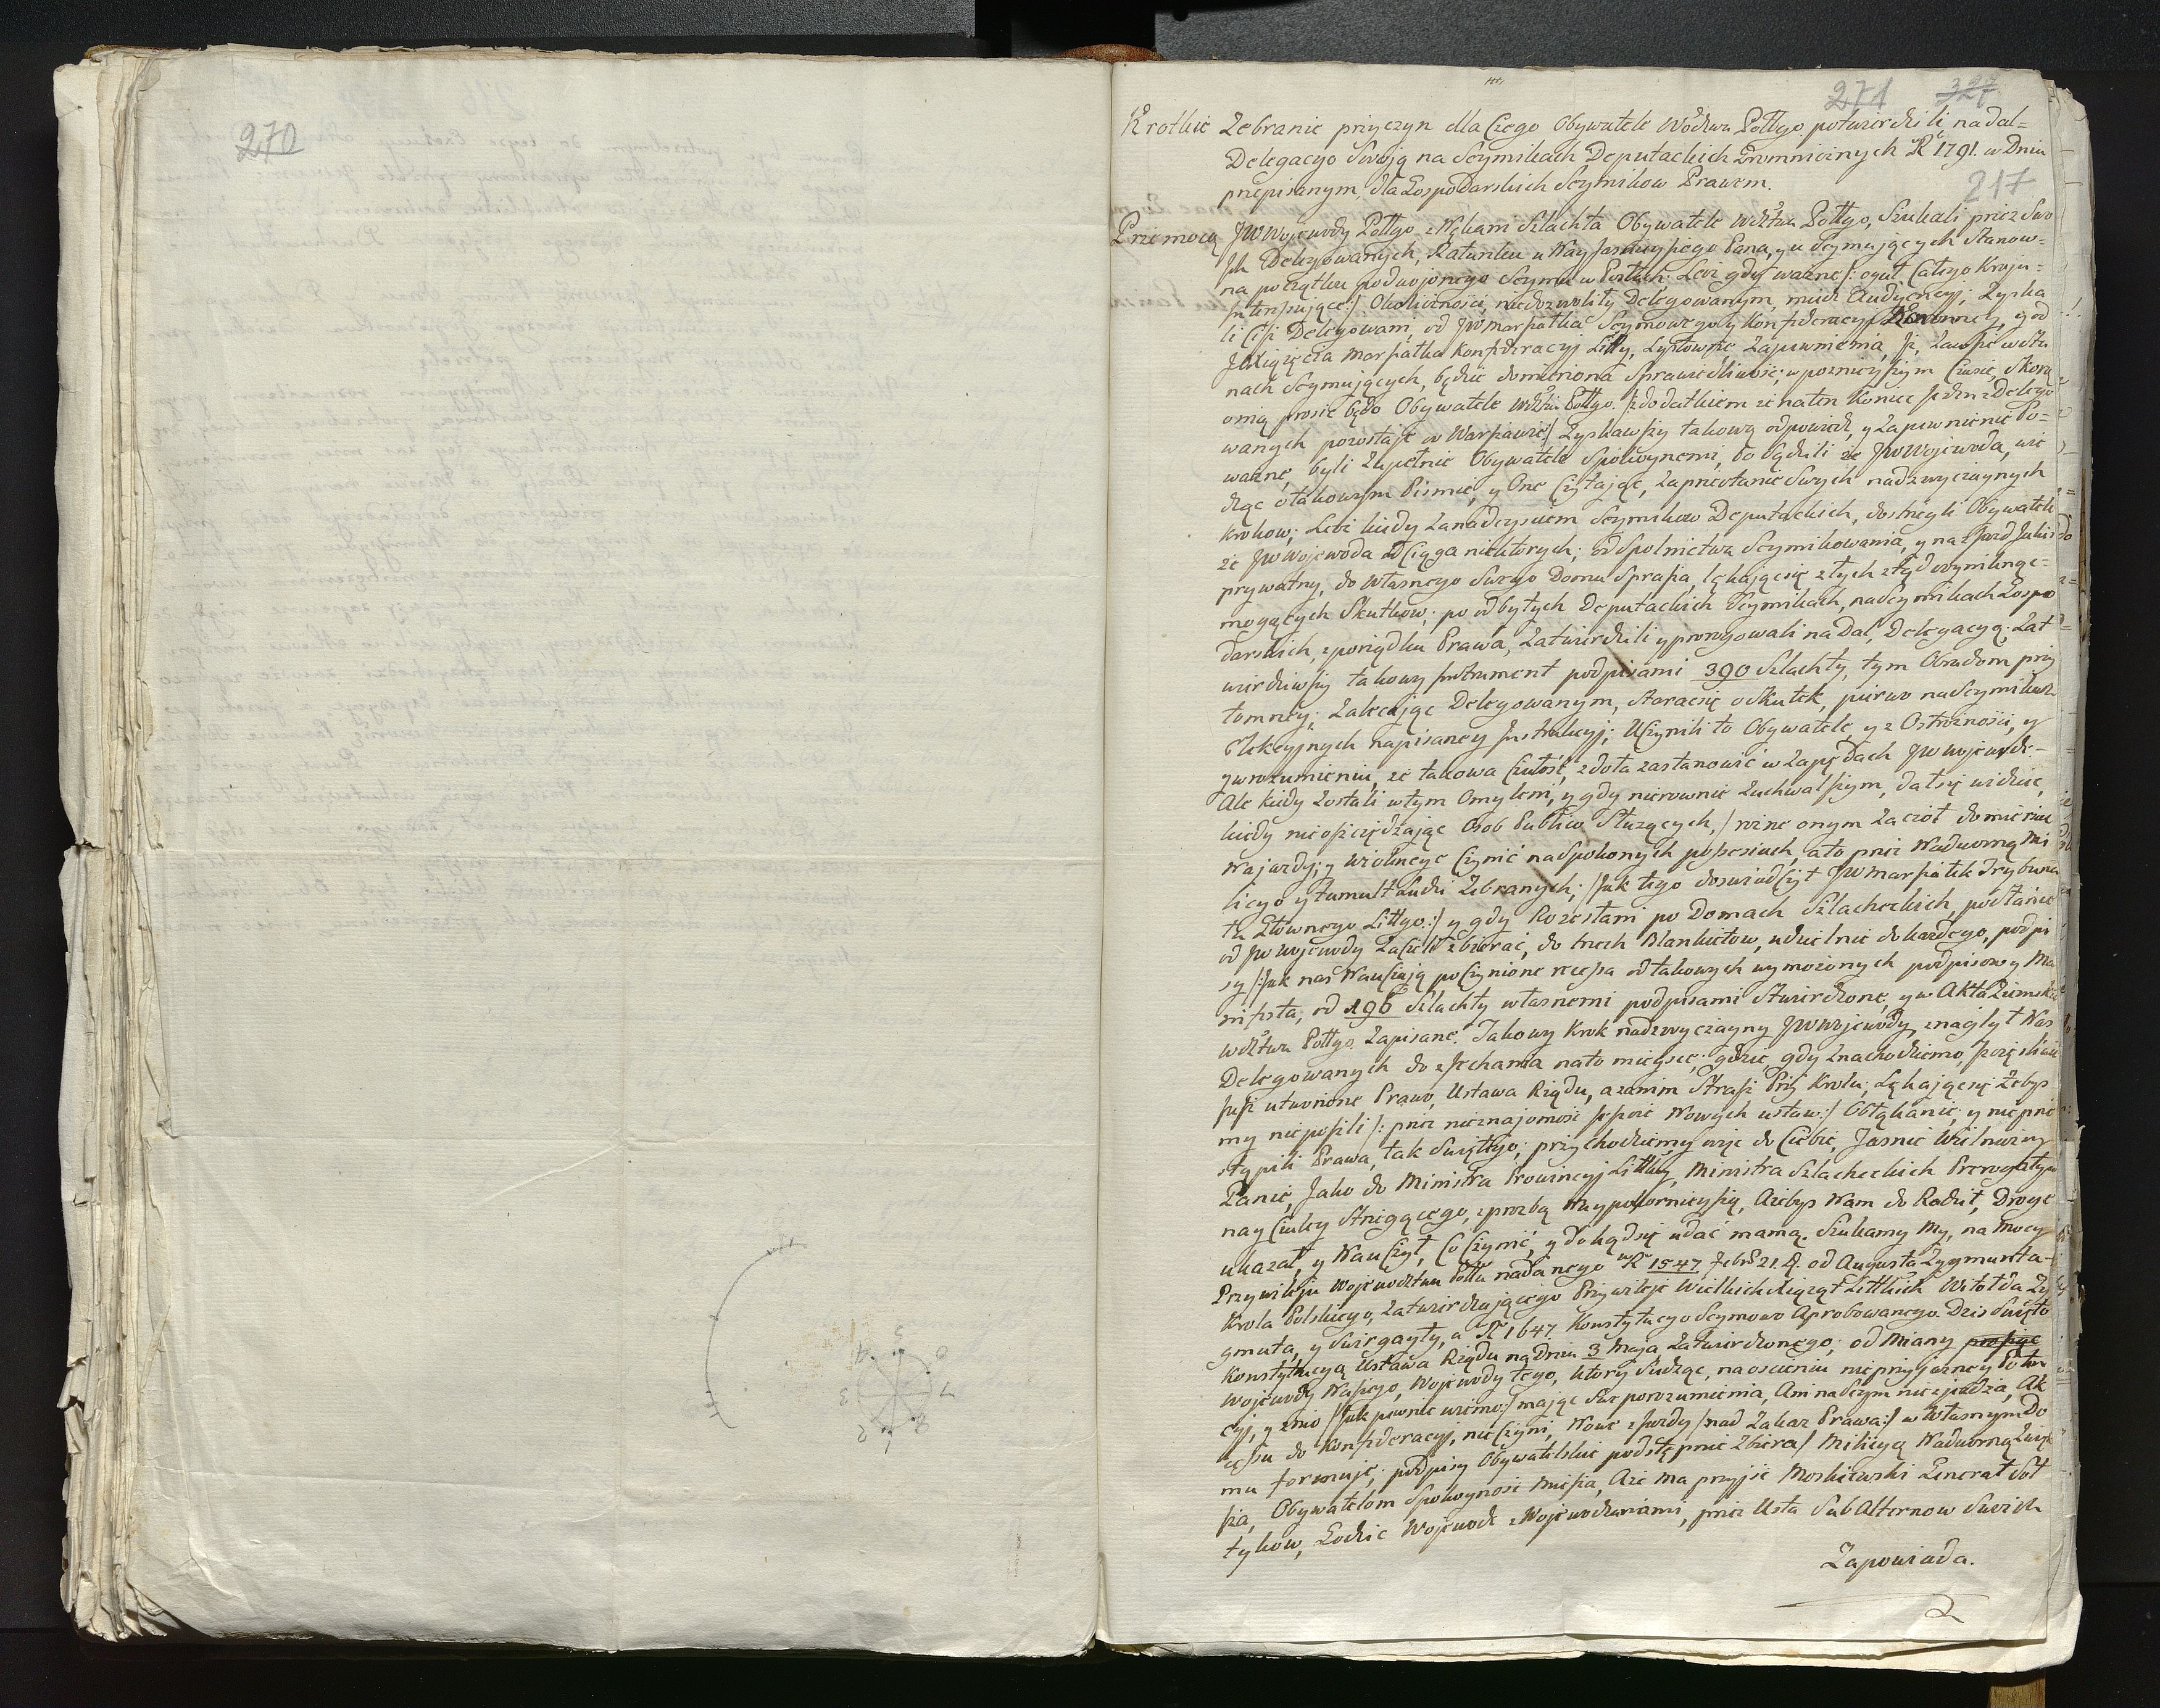 270
271 327
217
Krotkie Zebranie przyczyn dla Czego Obywatele Wodztwa Połtgo potwierdzili nadal=
Delegacyo Swoją na Seymikach Deputackich Gromnicznych R 1791. w Dniu
przepisanym, dla Gospodarskich Seymikow Prawem.
Przemocą JWWojewody Połtgo z Nękani Szlachta Obywatele Wdztwa Połtgo, Szukali przez Swo
Delegowanych, Ratunku u Nayjasnieyszego Pana, y u Seymujących Stanow=
na początku podwojonego Seymu w Posłach. Lecz gdy ważne /: ogół Całego Kraju=
Okoliczności, niedozwoliły Delegowanym, mieć Audyencyi; Zyska
li Ciż Delegowani, od JWMarszałka Seymowego y Konfederacyi Koronney, y od
JOXiążęcia Marszałka Konfederacyi Litty, Zapewnienia, iż, Zawsze w Sta
nach Seymujących, będzie domierzona Sprawiedliwość; w poznieyszym Czasie, Skoro
onią prosić będo Obywatele Wdztwa Połtgo. /: z dodatkiem że naten Koniec jeden z Delego
wanych pozostaje w Warszawie:/ Zyskawszy takową odpowiedz, y Zapewnienie Po=
ważne, byli Zupełnie Obywatele Spokoynemi, bo Sądzili że JWWojewoda, wie
dząc o takowym Pismie, y One Czytając, Zaprzestanie Swych nadzwyczaynych
Krokow; Lecz kiedy Zanadeysciem Seymikow Deputackich, dostrzegli Obywatele
że JWWojewoda odCiąga niektorych; od Spolnictwa Seymikowania, y na zjazd jakiś
prywatny, do własnego Swego Domu Sprasza, lękającsię złych ztąd wyniknąć=
mogących Skutkow; po odbytych Deputackich Seymikach, na Seymikach Gospo
darskich, z porządku Prawa, Zatwierdzili y prorogowali na Dal, Delegacyą; Zat
wierdziwszy takowy Instrument podpisami 390 Szlachty, tym Obradom przy
tomney; Zalecając Delegowanym, Staraćsię o Skutek, pierwo na Seymikach
Elekcyjnych napisaney Instrukcyi; Uczynili to Obywatele, y z Ostrożności, y
y w rozumieniu, że takowa Czułość, zdoła zastanowić w Zapędach JWWojewodę=
Ale kiedy Zostali w tym Omyleni, y gdy nierownie Zuchwalszym, dałsię widzieć,
kiedy nieoszczędzając Osob Publice Służących, / rożne onym Zaczoł
Najazdy; y Wiolencye Czynić na Spokonych possesiach, a to przez Nadworną Mi
licyo y tumult Ludzi Zebranych; /: Jak tego doswiadczył JWMarszałek Trybuna
łu Głównego Littgo:/ y gdy Rozesłani po Domach Szlacheckich, posłańcе
od JWWojewody Zaczeli zbierać, do trzech Blankietow, udzielnie do każdego, podpi
sy /: Jak nas Nauczają poczynione recessa od takowych wymożonych podpisow y Ma
nifesta; od 196 Szlachty własnemi podpisami Stwierdzone, y w Akta Ziemskie
Wdztwa Połtgo Zapisane. Takowy Krok nadzwyczayny JWWojewody, znaglył Nas
Delegowanych do zjechania nato mieysce; gdzie, gdy Znachodziemo,
jusz utworzone Prawo, Ustawa Rządu, a zanim Straż Przy Krolu; Lękającsię Żebys
my nieposzli /: przez nieznajomość jeszcze Nowych ustaw:/ Obłąkanie, y nieprze
stąpili Prawa, tak Swiętego; przychodziemy więc do Ciebie, Jasnie Wielmożny
Panie, Jako do Ministra Prowincyi Littey, Ministra Szlacheckich Prerogatyw
nay Czuley Strzegącego, z prozbą Naypokornieyszą, Azebys Nam do Radził, Droge
ukazał, y NauCzył, Co Czynić, y dokądsię udać mamą. Szukamy My, na Mocy
Przywileju Wojewodztwu Połtu nadanego w R 1547 Febr 21. d. od Augusta Zygmunta-
Krola Polskiego, Zatwierdzającego Przywileje Wielkich Xiążąt Littkich Witołda Zy
gmuta, y Swirgayły, a R 1647 Konstytucyo Seymowo Aprobowanego. Dzis Swięto
Konstytucyą Ustawa Rządu na dniu 3 Maja Zatwierdzonego; od Miany
Wojewody Naszego, Wojewody tego, ktory Siedząc, na oscieniu nieprzyjazney Poten
cyi, y znio /: Jak pewnie wiemo:/ mając Swe porozumienia, Ani na Seym nie zjeżdza, Ak
cessu do Konfederacyi, nie Czyni, Nowe zjazdy /: nad Zakaz Prawa:/ w Własnym Do
mu formuje; podpisy Obywatelskie podstępnie Zbiera / Milicyą Nadworną
sza, Obywatelom Spokoynośc miesza, Aże ma przyjść Moskiewski Generał Soł
tykow, Godzic Wojewode z Wojewodzanami, przez Usta Sub Alternow Swoich
Zapowiada.
0
7
8
1
2
3
4
5